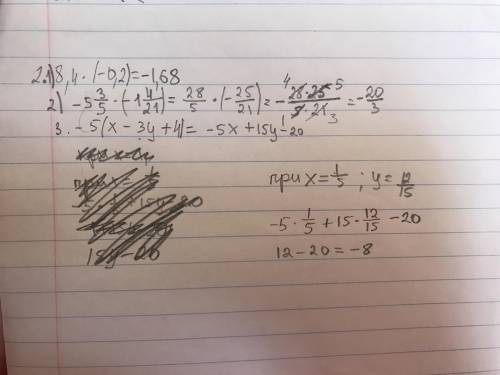 2.1) 8,4 · (-0,2) = -1,68
2) -5 3/5 · (-1 4/21) = 28/5 · (-25/21) = - 28·25/5·21 = -20/3
4 5 1 3
3. -5(x - 3y + 4) = -5x + 15y - 20
при x = 1/5 ; y = 12/15
-5 · 1/5 + 15 · 12/15 - 20
12 - 20 = -8
15y - 20